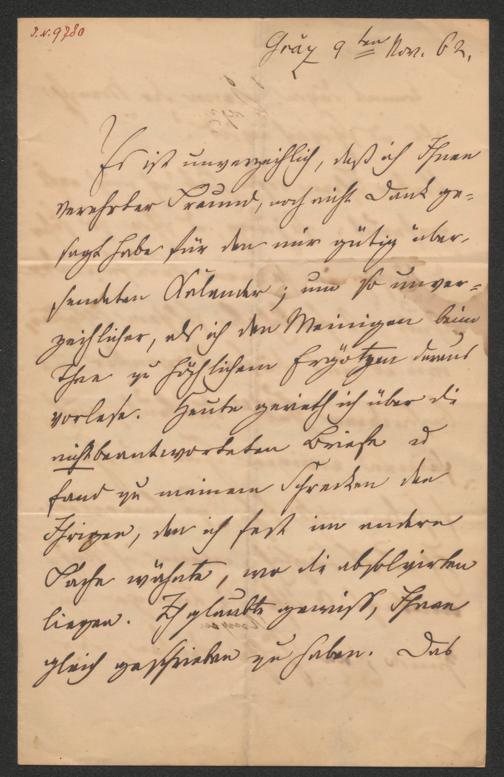 J.N. 9780
Gräz 9ten Nov. 62.
Es ist unverzeihlich, daß ich Ihnen
verehrter Freund, noch nicht Dank ge-
sagt habe für den mir gütig über-
sendeten Kalender; um so unver-
zeihlicher, als ich den Meinigen beim
Thee zu höchlichem Ergötzen daraus
vorlese. Heute gerieth ich über die
nichtbeantworteten Briefe u
fand zu meinem Schrecken den
Ihrigen, den ich fest im andern
Fache wähnte, wo die absolvirten
liegen. Ich glaubte gewiß, Ihnen
gleich geschrieben zu haben. Das